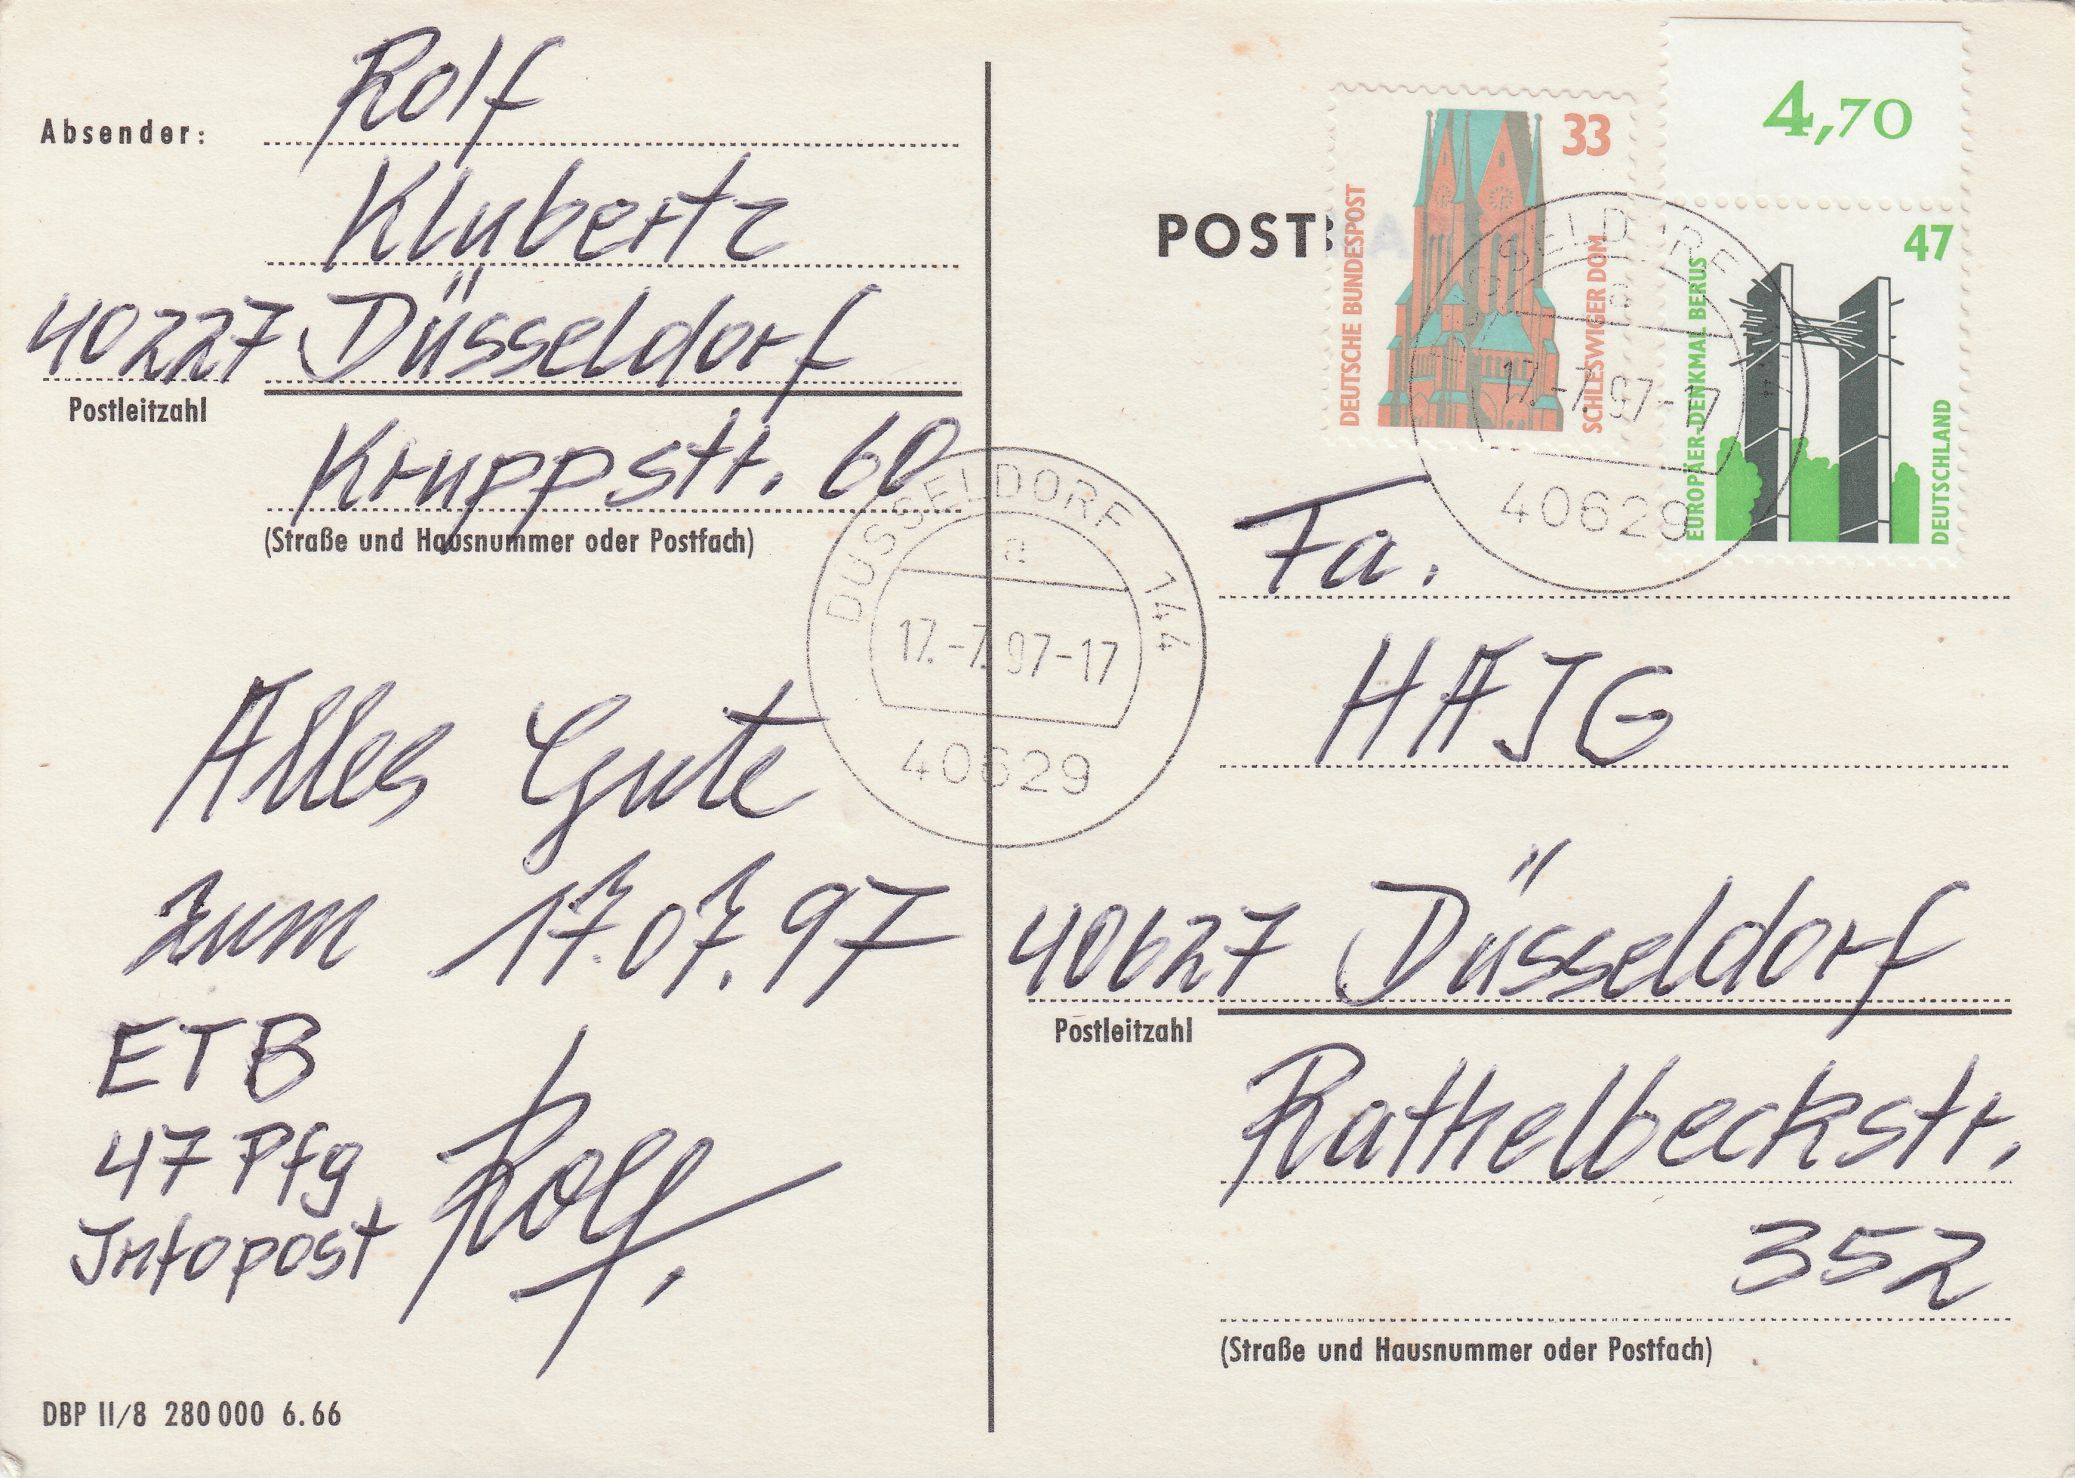 Absender:
Rolf
Klubertz
40227 Düsseldorf
Postleitzahl
Kruppstr. 60
(Straße und Hausnummer oder Postfach)
Alles Gute
zum 17.07.97
ETB
47 Pfg
Infopost
Rolf
DBP II/8 280 000 6.66
POST
33
DEUTSCHE BUNDESPOST
SCHLESWIGER DOM
4,70
47
EUROPÄER-DENKMAL BERUS
DEUTSCHLAND
DÜSSELDORF 144
a
17.-7.97-17
40629
DÜSSELDORF 144
a
17.-7.97-17
40629
Fa.
HAJG
40627 Düsseldorf
Postleitzahl
Rathelbeckstr.
352
(Straße und Hausnummer oder Postfach)